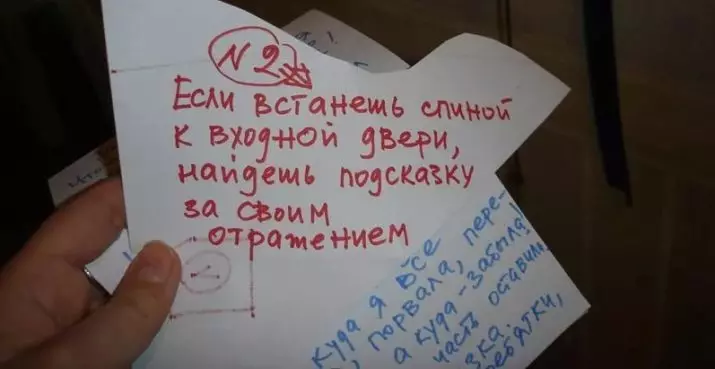 N2
Если встанешь спиной
к входной двери,
найдешь подсказку
за своим
отражением
куда я все
порвала, пере-
а куда-забыла!
часть оставила
зка.
ребятки,